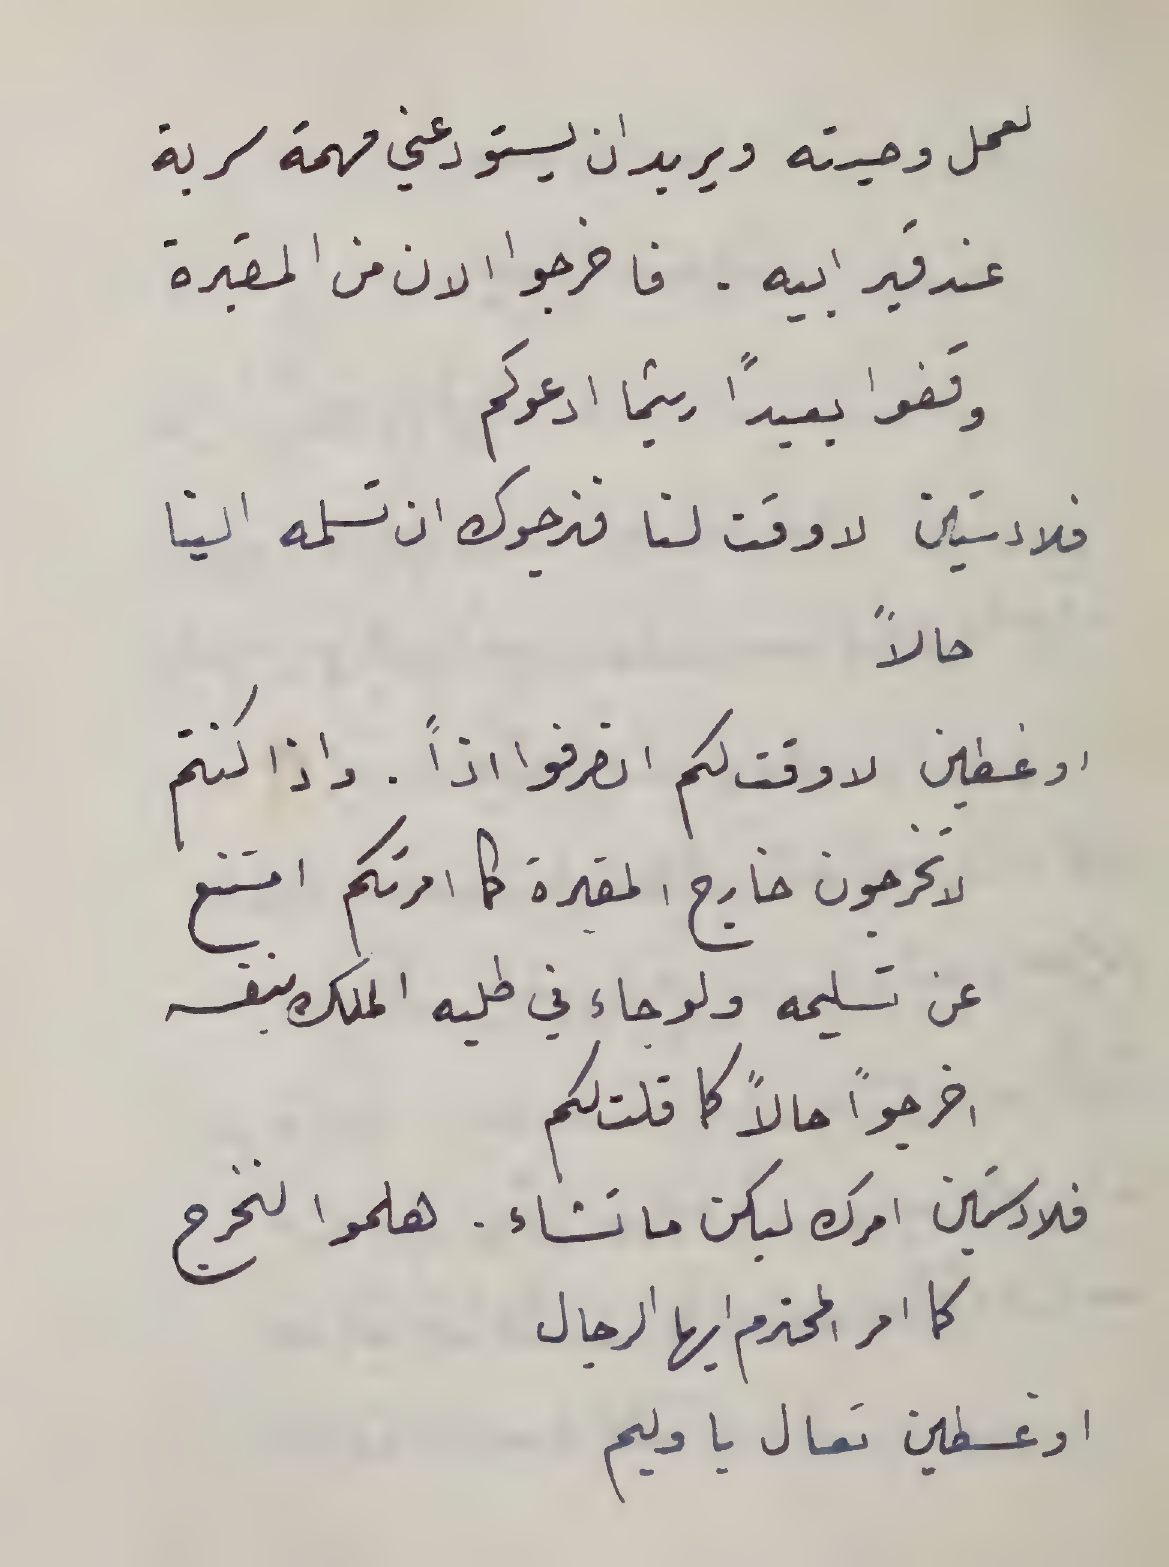 لعمل وصيته ويريد ان يستودعني مهمة سرية
عند قبر ابيه . فاخرجوا الان من المقبرة
وقفوا بعيداً ريثما ادعوكم
فلادستين لا وقت لنا فنرجوك ان تسلمه الينا
حالاً
اوغسطين لا وقت لكم انصرفوا اذاً . واذا كنتم
لا تخرجون خارج المقبرة كما امرتكم امتنع
عن تسليمه ولو جاء في طلبه الملك بنفسه
اخرجواً حالاً كما قلت لكم
فلادستين امرك ليكن ما تشاء . هلموا لنخرج
كما امر المحترم ايها الرجال
اوغسطين تعال يا وليم